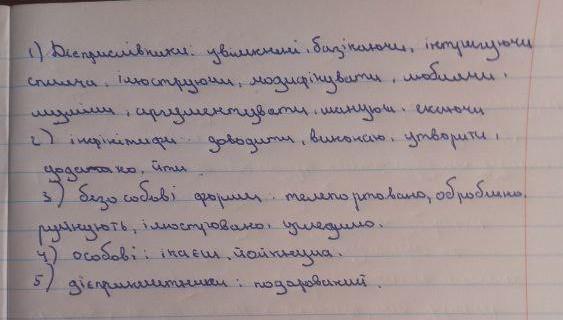 1) Дієприслівники: увімкнені, базікаючи, інтригуючи
спляча, ілюструючи, модифікувати, люблячи,
аргументувати, шануючи, екаючи
2) інфінітиви: доводити, виконаю, утворити,
додатково, йти
3) безособові форми: телепортовано, оброблено,
руйнують, ілюстровано,
4) особові: ікаєш, йойкнула.
5) дієприкметники: подарований.